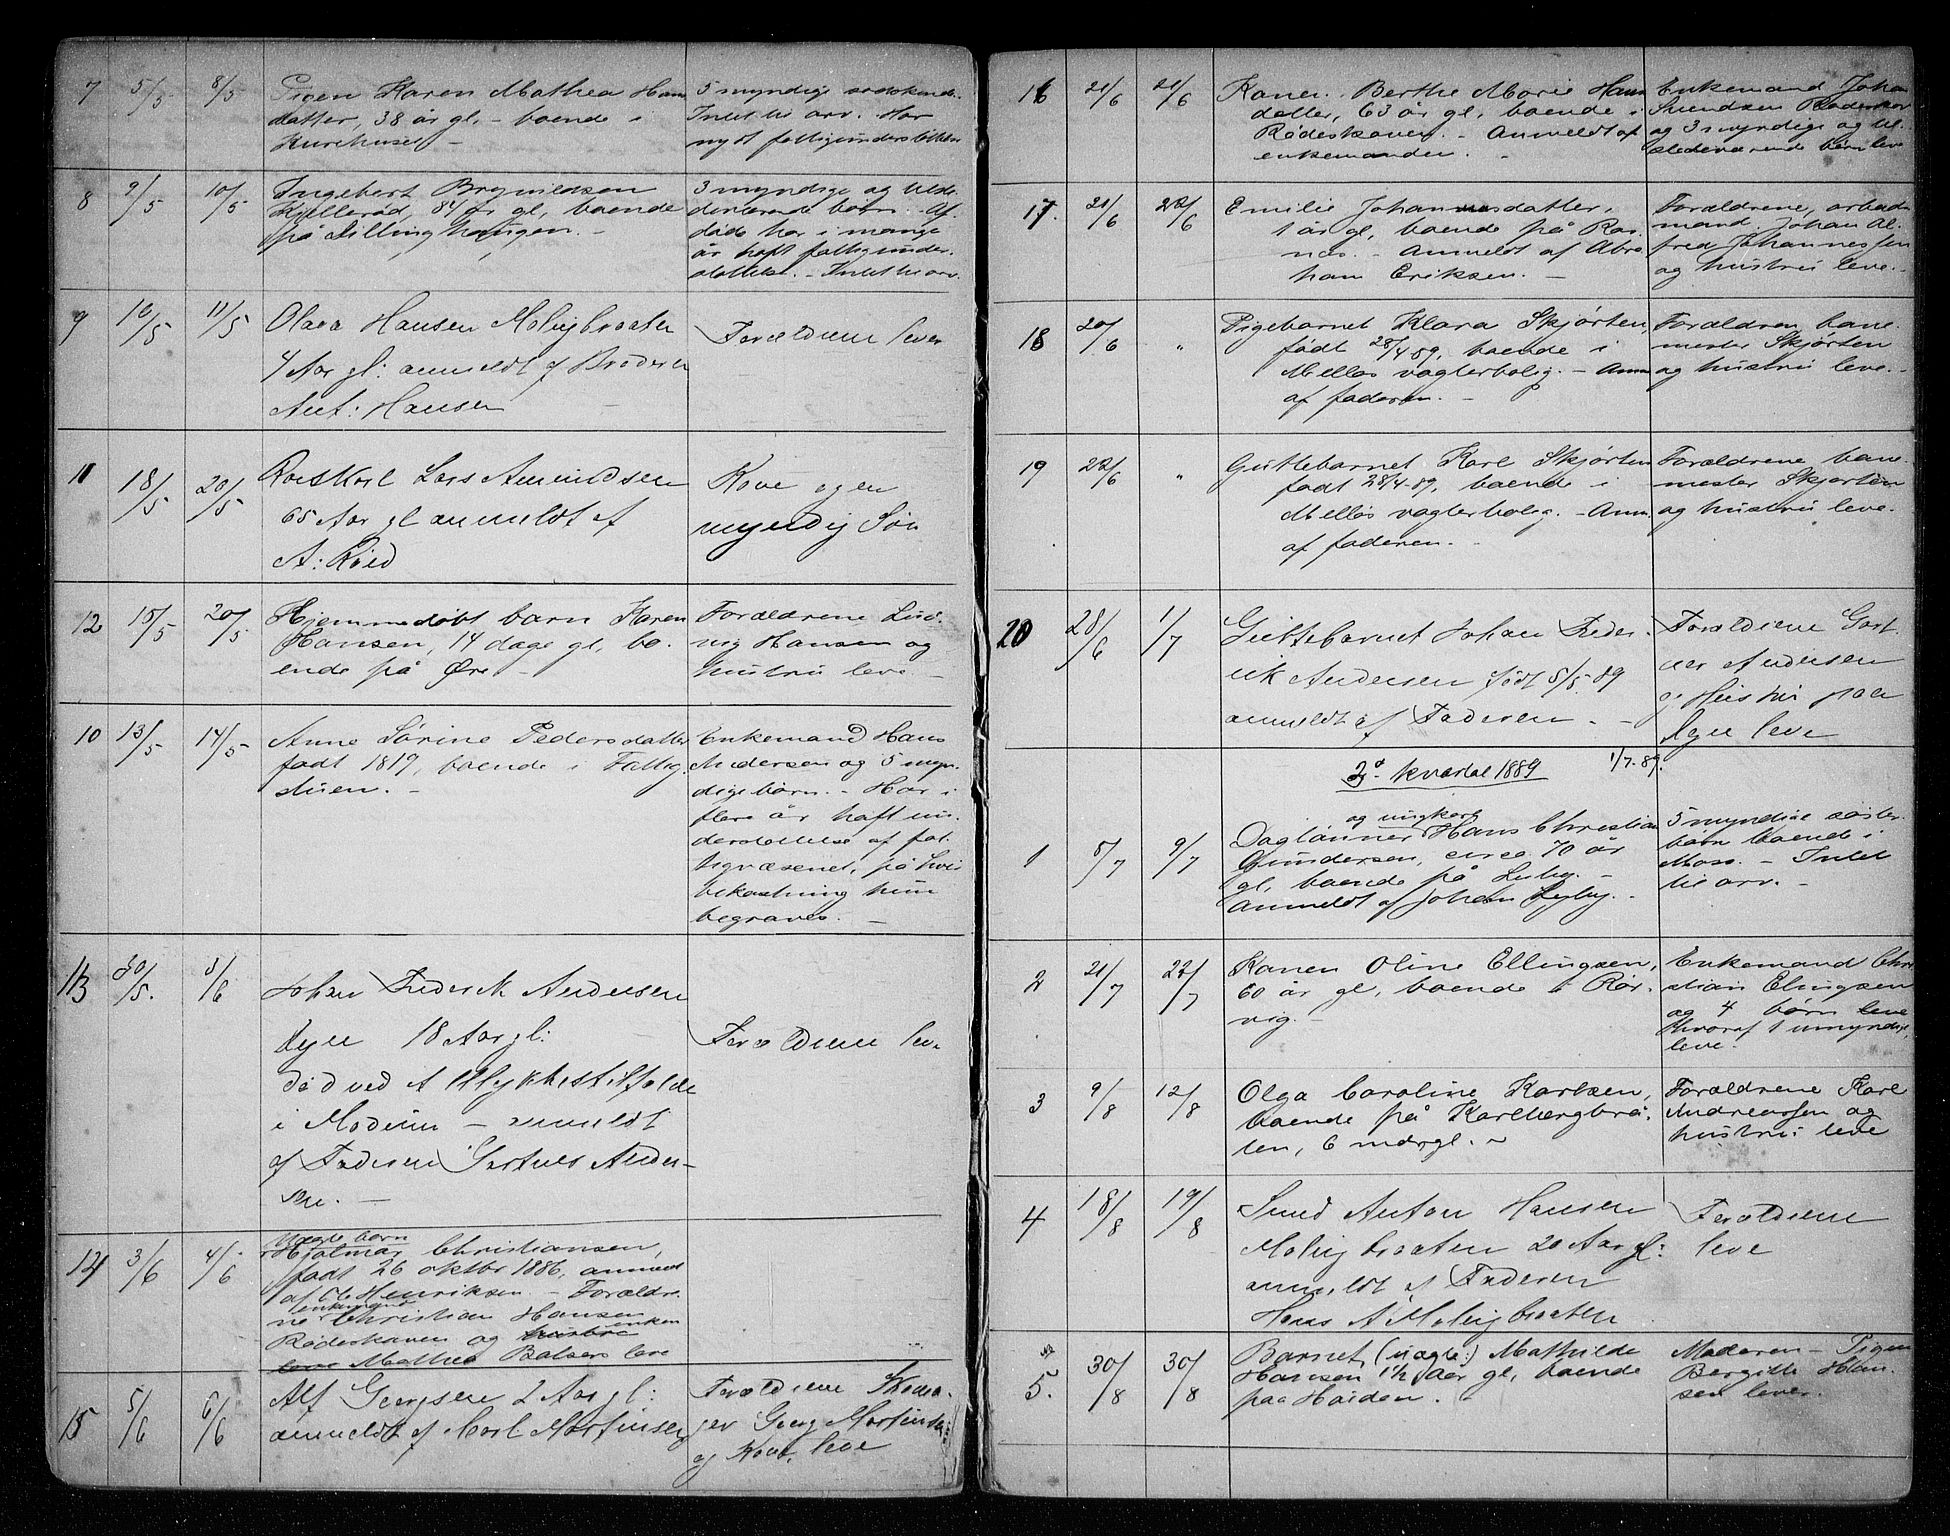 7 5/5 8/5 Pigen Karen Mathea Hans
datter, 38 år gl. - boende i
Kurehuset -
5 myndige sødskende.
Intet til arv. Har
nydt fattigunderstøttelse
8 9/5 10/5 Ingebert Brynildsen
Kjellerød, 84 år gl, boende
på Dillinghaugen. -
3 myndige og tilste-
deværende børn. - Af-
døde har i mange
år haft fattigunder-
støttelse. - Intet til arv.
9 10/5 11/5 Olava Hansen Molvigbraaten
4 Aar gl: anmeldt af Broderen
Ant: Hansen
Forældrene lever
11 18/5 20/5 Lars Amundsen
65 Aar gl anmeldt af
A: Röed
Kone og en
myndig Sön
12 15/5 20/5 Hjemmedøbt barn Karen
Hansen, 14 dage gl, bo-
ende på Øre -
Forældrene Lud-
vig Hansen og
hustru leve. -
10 13/5 14/5 Anne Sørine Pedersdatter
født 1819, boende i Fattig-
stuen. -
Enkemand Hans
Andersen og 5 myn-
dige børn. - Har i
flere år haft un-
derstøttelse af fat-
tigvæsenet, på hvis
bekostning hun
begraves. -
13 30/5. 3/6 Johan Frederik Andersen
Ryen 18 Aar gl:
död ved et Ulykkestilfælde
i Modum - anmeldt
af Faderen Andersen. -
Forældrene leve
14 3/6 4/6 Uægte barn
Hjalmar Christiansen,
født 26 oktbr 1886, anmeldt
af Ole Henriksen. - Forældre-
ne enkemand Christian Hansen
Rødeskoven og hustru enken
leve Mathea Balsen leve
15 5/6 6/6 Alf Georgsen 2 Aar gl:
anmeldt af Morl Martinsen
Forældrene
Georg Martinsen
og Kone, leve
16 21/6 21/6 Konen Berthe Marie Hans
datter, 63 år gl, boende i
Rødeskoven. - Anmeldt af
enkemanden. -
Enkemand Johan
Svendsen Rødeskov
og 3 myndige og til-
stedeværende børn leve
17. 21/6 22/6 Emilie Johannesdatter,
1 år gl, boende på Ror-
næs. - Anmeldt af Abra-
ham Eriksen. -
Forældrene, arbeids-
mand Johan Al-
fred Johannessen
og hustru leve. -
18 20/6 " Pigebarnet Klara Skjørten,
født 28/4 89, boende i
Melløs vagterbolig. - Anm
af faderen. -
Forældren bane-
mester Skjørten
og hustru leve. -
19 22/6 " Guttebarnet Karl Skjørten
født 28/4-89, boende i
Melløs vagterbolig. - Anm.
af faderen. -
Forældrene bane-
mester Skjørten
og hustru leve. -
20 28/6 1/7 Guttebarnet Johan Freder-
rik Andersen födt 5/5.89
anmeldt af Faderen. -
Forældrene Gart-
ner Andersen
og Hustru paa
Ryen leve
1/7.89.
3die kvartal 1889
1 5/7 9/7 og ungkarl
Daglønner Hans Christian
Gundersen, circa 70 år
gl, boende på Leiby. -
Anmeldt af Johan Leyby. -
5 myndige søster-
børn boende i
Moss. - Intet
til arv. -
2 21/7 22/7 Konen Oline Ellingsen,
60 år gl, boende i Rør-
vig. -
Enkemand Chri
stian Elingsen
og 4 børn leve
Hvoraf 1 umyndig,
leve.
3 9/8 12/8 Olga Caroline Karlsen,
boende på Karlbergbrå-
ten, 6 mdr gl. -
Forældrene Karl
Andreassen og
hustru leve
4 18/8 19/8 Anton Hansen
Molvigbraaten 20 Aar gl:
anmeldt af Faderen
Hans A Molvigbraaten
Forældrene
leve
5. 30/8 30/8 Barnet (uægte:) Mathilde
Hansen 1½ Aar gl, boende
paa Haiden.
Moderen - Pigen
Bergitte Han-
sen lever.